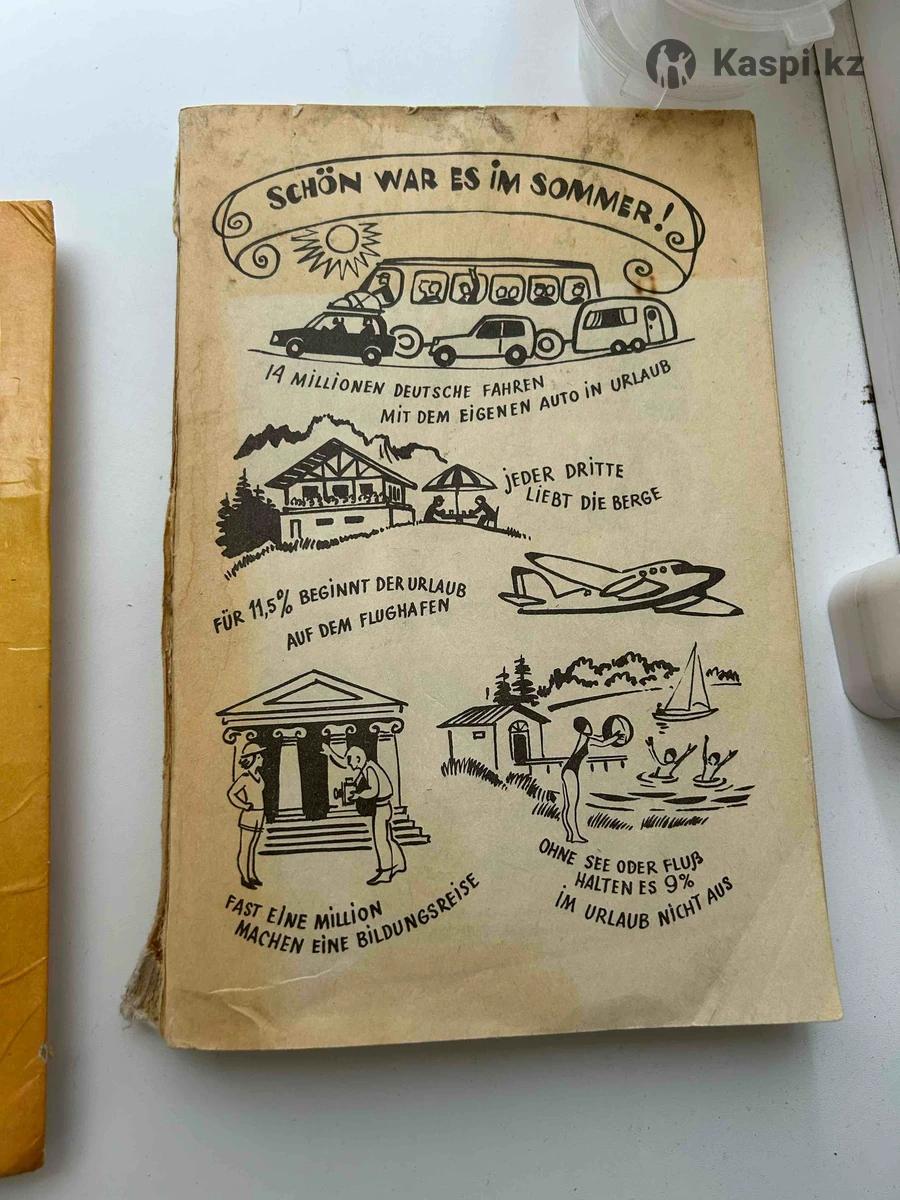 Kaspi.kz
SCHÖN WAR ES IM SOMMER!
14 MILLIONEN DEUTSCHE FAHREN
MIT DEM EIGENEN AUTO IN URLAUB
JEDER DRITTE
LIEBT DIE BERGE
FÜR 11,5% BEGINNT DER URLAUB
AUF DEM FLUGHAFEN
FAST EINE MILLION
MACHEN EINE BILDUNGSREISE
OHNE SEE ODER FLUß
HALTEN ES 9%
IM URLAUB NICHT AUS